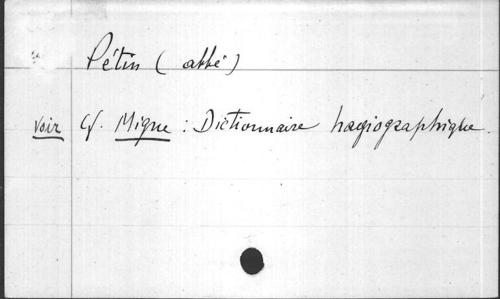 Pétin (abbé)
voir Cf. Migne : Dictionnaire hagiographique.